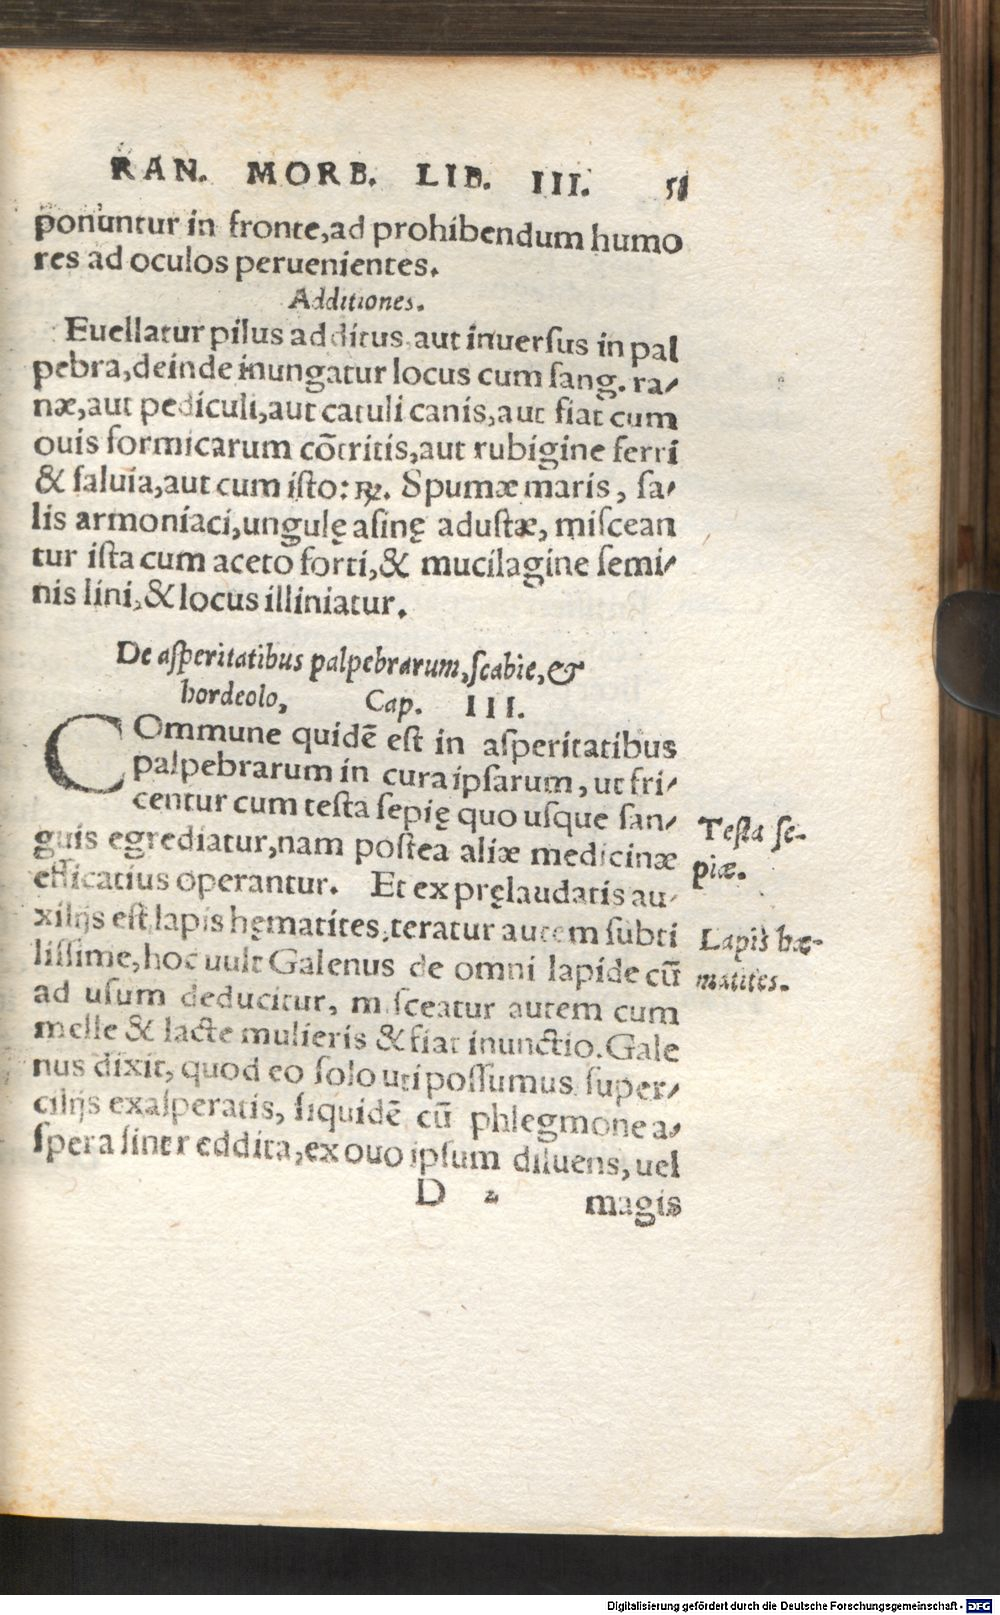 RAN. MORB. LIB. III. 51
ponuntur in fronte,ad prohibendum humo
res ad oculos peruenientes.
Additiones.
Euellatur pilus additus, aut inuersus in pal
pebra,deinde inungatur locus cum sang. ra/
næ,aut pediculi,aut catuli canis,aut fiat cum
ouis formicarum cõtritis,aut rubigine ferri
& saluia,aut cum isto: ℞. Spumæ maris, sa/
lis armoniaci,ungulę asinę adustæ, miscean
tur ista cum aceto forti,& mucilagine semi/
nis lini,& locus illiniatur.
De asperitatibus palpebrarum,scabie,&
hordeolo, Cap. III.
COmmune quidẽ est in asperitatibus
palpebrarum in cura ipsarum, ut fri/
centur cum testa sepię quo usque san/
guis egrediatur,nam postea aliæ medicinæ
efficatius operantur. Et ex pręlaudatis au/
xilijs est lapis hęmatites,teratur autem subti
lissime,hoc uult Galenus de omni lapide cũ
ad usum deducitur, misceatur autem cum
melle & lacte mulieris & fiat inunctio.Gale
nus dixit, quod eo solo uti possumus super/
cilijs exasperatis, siquidẽ cũ phlegmone a/
spera sint reddita,ex ouo ipsum diluens, uel
D 2 magis
Testa se-
piæ.
Lapis hæ-
matites.
Digitalisierung gefördert durch die Deutsche Forschungsgemeinschaft - DFG